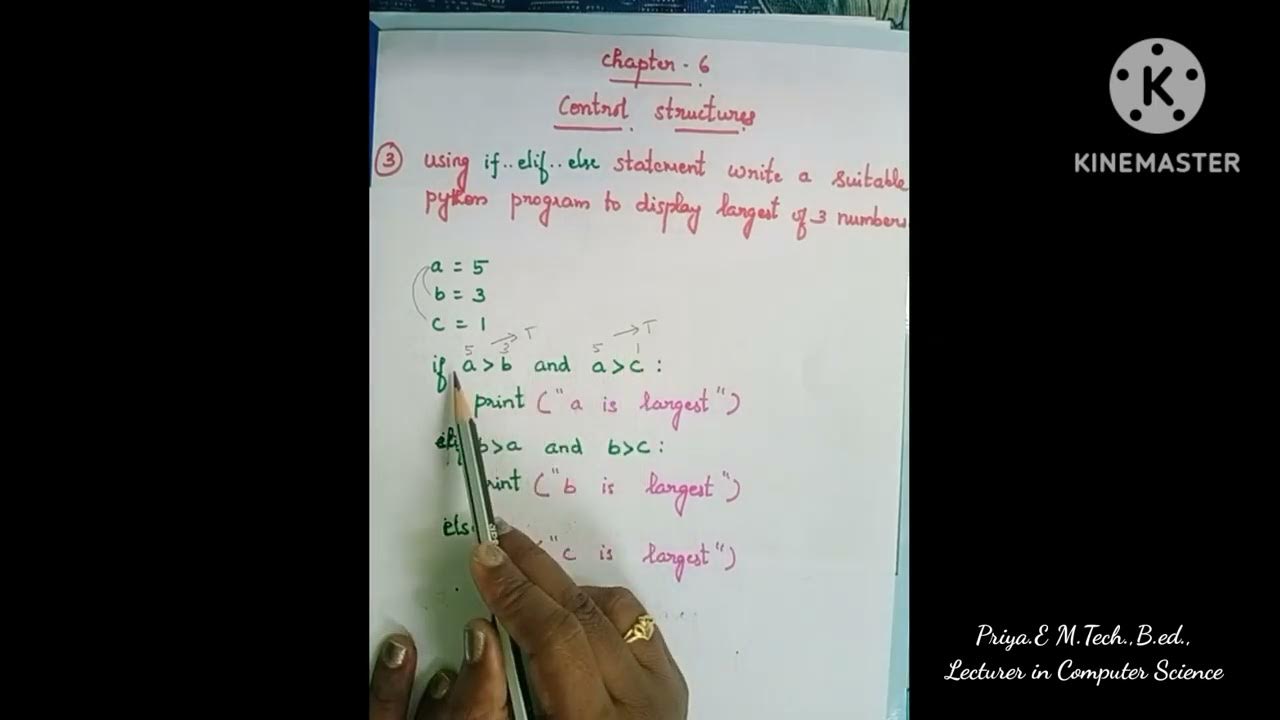 Chapter - 6
Control structures
3 using if..elif..else statement write a suitable
python program to display largest of 3 numbers
a = 5
b = 3
c = 1
T T
5 3 5 1
if a > b and a > c :
print ("a is largest")
elif b>a and b>c :
print ("b is largest")
else
"c is largest")
K
KINEMASTER
Priya.E M.Tech.,B.ed.,
Lecturer in Computer Science